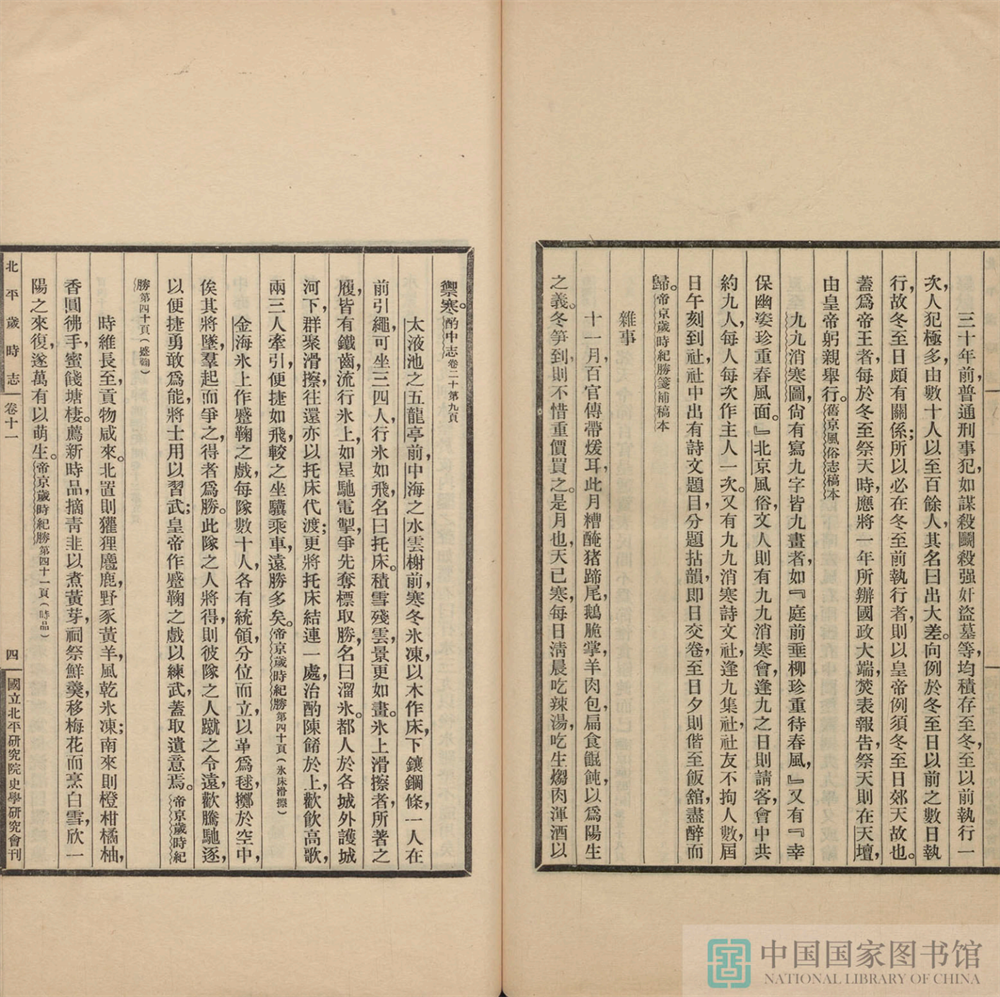 三十年前普通刑事犯如謀殺鬬殺强奸盜墓等均積存至冬至以前執行一
次，人犯極多，由數十人以至百餘人，其名曰出大差。向例於冬至日以前之數日執
行，故冬至日頗有關係；所以必在冬至前執行者，則以皇帝例須冬至日郊天故也。
蓋爲帝王者，每於冬至祭天時，應將一年所辦國政大端，焚表報告，祭天則在天壇，
由皇帝躬親舉行。舊京風俗志稿本
九九消寒圖，尙有寫九字皆九畫者，如『庭前垂柳珍重待春風，』又有『幸
保幽姿珍重春風面。』北京風俗，文人則有九九消寒會，逢九之日則請客，會中共
約九人，每人每次作主人一次。又有九九消寒詩文社，逢九集社，社友不拘人數，屆
日午刻到社，社中出有詩文題目，分題拈韻，卽日交卷，至日夕則偕至飯舘，盡醉而
歸。帝京歲時紀勝箋補稿本
雜事
十一月，百官傳帶煖耳，此月糟醃猪蹄尾，鵝脆掌，羊肉包，扁食餛飩，以爲陽生
之義。冬筍到，則不惜重價買之。是月也，天已寒，每日淸晨吃辣湯，吃生煼肉渾酒以
禦寒。酌中志卷二十第九頁
太液池之五龍亭前，中海之水雲榭前，寒冬氷凍，以木作床，下鑲鋼條，一人在
前引繩，可坐三四人，行氷如飛，名曰托床。積雪殘雲，景更如畫。氷上滑擦者，所著之
履皆有鐵齒，流行氷上，如星馳電掣，爭先奪標取勝，名曰溜氷。都人於各城外護城
河下，群聚滑擦，往還亦以托床代渡；更將托床結連一處，治酌陳餚於上，歡飲高歌，
兩三人牽引，便捷如飛，較之坐驥乘車，遠勝多矣。帝京歲時紀勝第四十頁（氷床滑擦）
金海氷上作蹙鞠之戲，每隊數十人，各有統領，分位而立，以革爲毬，擲於空中，
俟其將墜，羣起而爭之，得者爲勝。此隊之人將得，則彼隊之人蹴之令遠，歡騰馳逐，
以便捷勇敢爲能，將士用以習武；皇帝作蹙鞠之戲以練武，蓋取遺意焉。帝京歲時紀
勝第四十頁（蹙鞠）
時維長至，貢物咸來。北置則獾狸麅鹿，野豕黃羊，風乾氷凍；南來則橙柑橘柚，
香圓彿手，蜜餞塘棲。薦新時品，摘靑韭以煮黃芽，祠祭鮮羹，移梅花而烹白雪，欣一
陽之來復，遂萬有以萌生。帝京歲時紀勝第四十一頁（時品）
北平歲時志　卷十一　四　國立北平研究院史學研究會刊
中国国家图书馆
NATIONAL LIBRARY OF CHINA